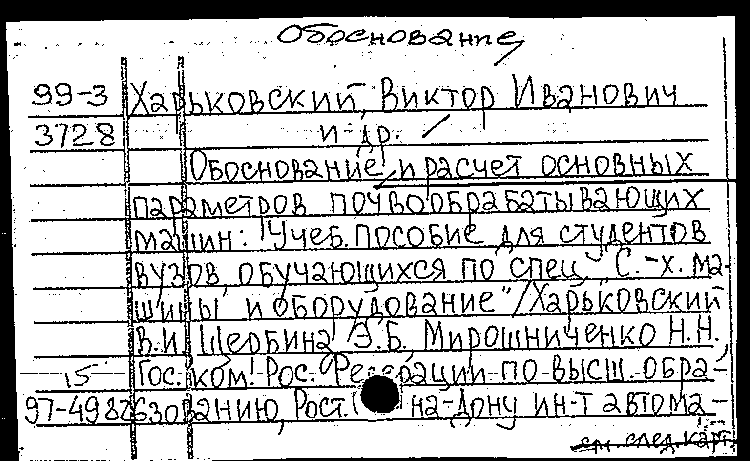 Обоснование
99-3 Харьковский, Виктор Иванович
3728 и др.
Обоснование и расчет основных
параметров почвообрабатывающих
машин: Учеб. пособие для студентов
вузов, обучающихся по спец. "С.-х. ма-
шины и оборудование"/Харьковский
В.И. Щербина Э.Б., Мирошниченко Н.Н.,
15 Гос. ком. Рос. Федерации по высш. обра-
97-49826 зованию, Рост. на-Дону ин-т автома-
см. след. карт.